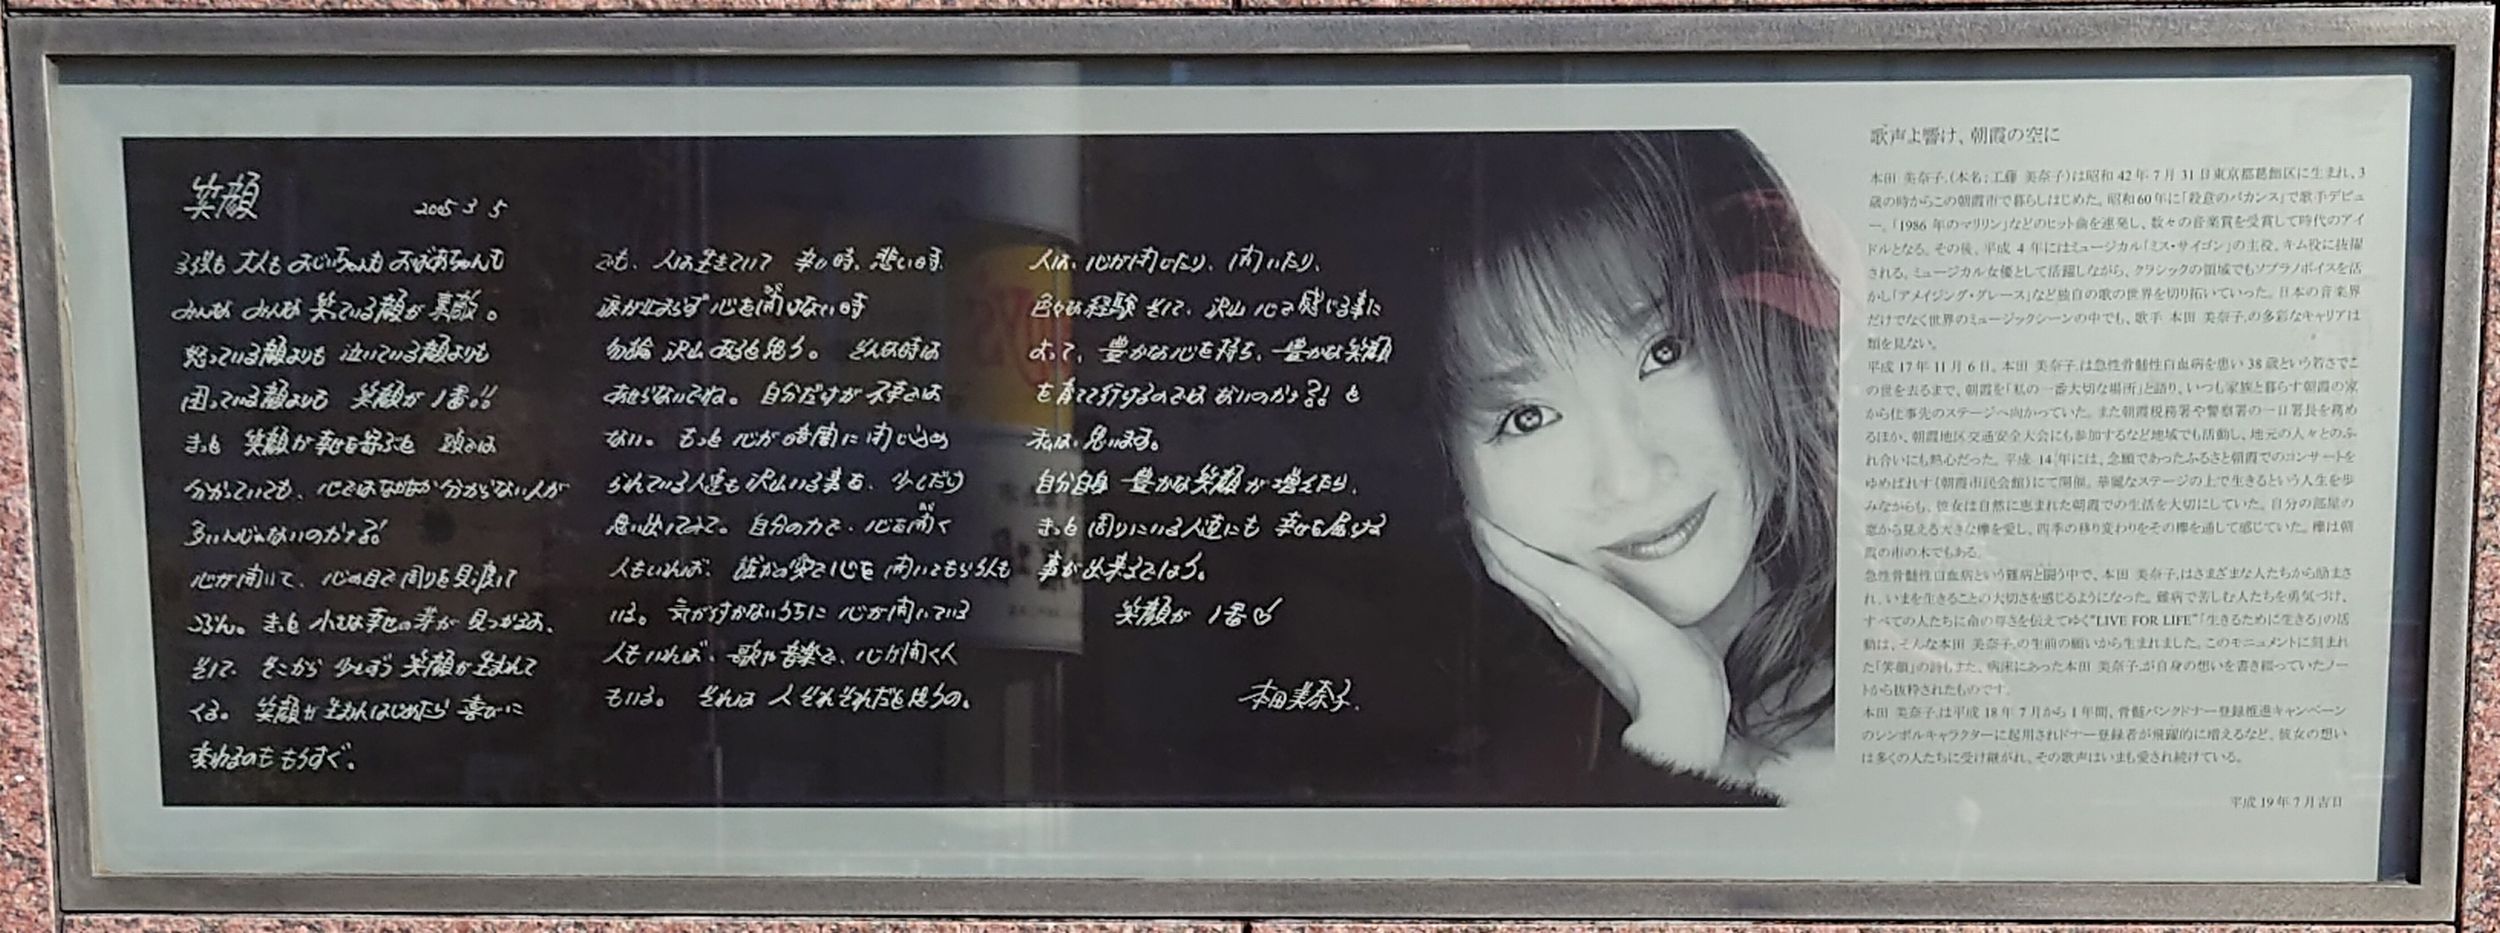 笑顔
2005 3 5
子供も 大人も おじいちゃんも おばあちゃんも
みんな みんな 笑ている顔が 素敵。
怒っている顔よりも 泣いている顔よりも
困っている顔よりも 笑顔が 1番!!
きっと 笑顔が幸せを呼ぶと 頭では
分かっていても、心ではなかなか分からない人が
多いんじゃないのかナ?!
心が開いて、心の目で周りを見渡して
ごらん。きっと 小さな幸せの芽が 見つかるよ、
そして、そこから 少しずつ 笑顔が生まれて
くる。 笑顔が生まれはじめたら 喜びに
変わるのも もうすぐ。
でも、人は生きていて 辛い時、悲い時、
涙が止まらず 心を開けない時
勿論 沢山 あると思う。 そんな時は
あせらないでね。自分だけが 不幸では
ない。もっと 心が暗闇に閉じ込め
られている人達も沢山いる事を、少しだけ
思い出してみて。 自分の力で、心を開く
人もいれば、誰かの愛で心を 開いてもらう人も
いる。気が付かないうちに 心が開いている
人もいれば、歌や音楽で、心が開く人
もいる。 それは 人それぞれだと思うの。
人は、心が閉じたり、開いたり、
色々な経験 そして、沢山 心で感じる事に
よって、豊かな心を持ち、豊かな笑顔
を育てて行けるのではないのかナ?! と
私は、思います。
自分自身 豊かな笑顔が増えたら、
きっと周りにいる人達にも 幸せを届ける
事が出来るでしょう。
笑顔が 1番♡
本田美奈子.
歌声よ響け、朝霞の空に
本田 美奈子.(本名；工藤 美奈子)は昭和42年7月31日東京都葛飾区に生まれ、3
歳の時からこの朝霞市で暮らしはじめた。昭和60年に「殺意のバカンス」で歌手デビュ
ー。「1986年のマリリン」などのヒット曲を連発し、数々の音楽賞を受賞して時代のアイ
ドルとなる。その後、平成 4 年にはミュージカル「ミス・サイゴン」の主役、キム役に抜擢
される。ミュージカル女優として活躍しながら、クラシックの領域でもソプラノボイスを活
かし「アメイジング・グレース」など独自の歌の世界を切り拓いていった。日本の音楽界
だけでなく世界のミュージックシーンの中でも、歌手 本田 美奈子.の多彩なキャリアは
類を見ない。
平成17年11月6日。本田 美奈子.は急性骨髄性白血病を患い38歳という若さでこ
の世を去るまで、朝霞を「私の一番大切な場所」と語り、いつも家族と暮らす朝霞の家
から仕事先のステージへ向かっていた。また朝霞税務署や警察署の一日署長を務め
るほか、朝霞地区交通安全大会にも参加するなど地域でも活動し、地元の人々とのふ
れ合いにも熱心だった。平成 14 年には、念願であったふるさと朝霞でのコンサートを
ゆめぱれす(朝霞市民会館)にて開催。華麗なステージの上で生きるという人生を歩
みながらも、彼女は自然に恵まれた朝霞での生活を大切にしていた。自分の部屋の
窓から見える大きな欅を愛し、四季の移り変わりをその欅を通して感じていた。欅は朝
霞の市の木でもある。
急性骨髄性白血病という難病と闘う中で、本田 美奈子.はさまざまな人たちから励まさ
れ、いまを生きることの大切さを感じるようになった。難病で苦しむ人たちを勇気づけ、
すべての人たちに命の尊さを伝えてゆく"LIVE FOR LIFE"「生きるために生きる」の活
動は、そんな本田 美奈子.の生前の願いから生まれました。このモニュメントに刻まれ
た「笑顔」の詩もまた、病床にあった本田 美奈子.が自身の想いを書き綴っていたノー
トから抜粋されたものです。
本田 美奈子.は平成18年7月から1年間、骨髄バンクドナー登録推進キャンペーン
のシンボルキャラクターに起用されドナー登録者が飛躍的に増えるなど、彼女の想い
は多くの人たちに受け継がれ、その歌声はいまも愛され続けている。
平成19年7月吉日